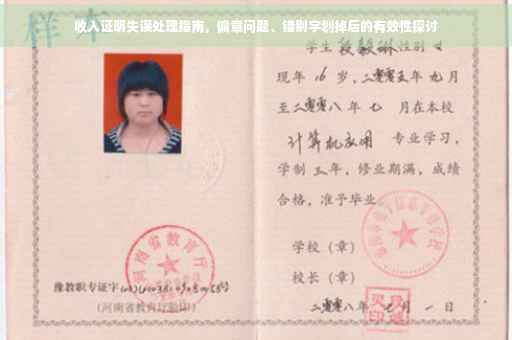 收入证明失误处理指南，偏章问题、错别字划掉后的有效性探讨
样本
学生段毅琳性别女
现年16岁，二零零五年九月
至二零零八年七月在本校
计算机应用 专业学习，
学制三年，修业期满，成绩
合格，准予毕业。
学校（章）
校长（章）
河南省教育厅
豫教职专证字
(河南省教育厅验印)
二零零八年七月一日